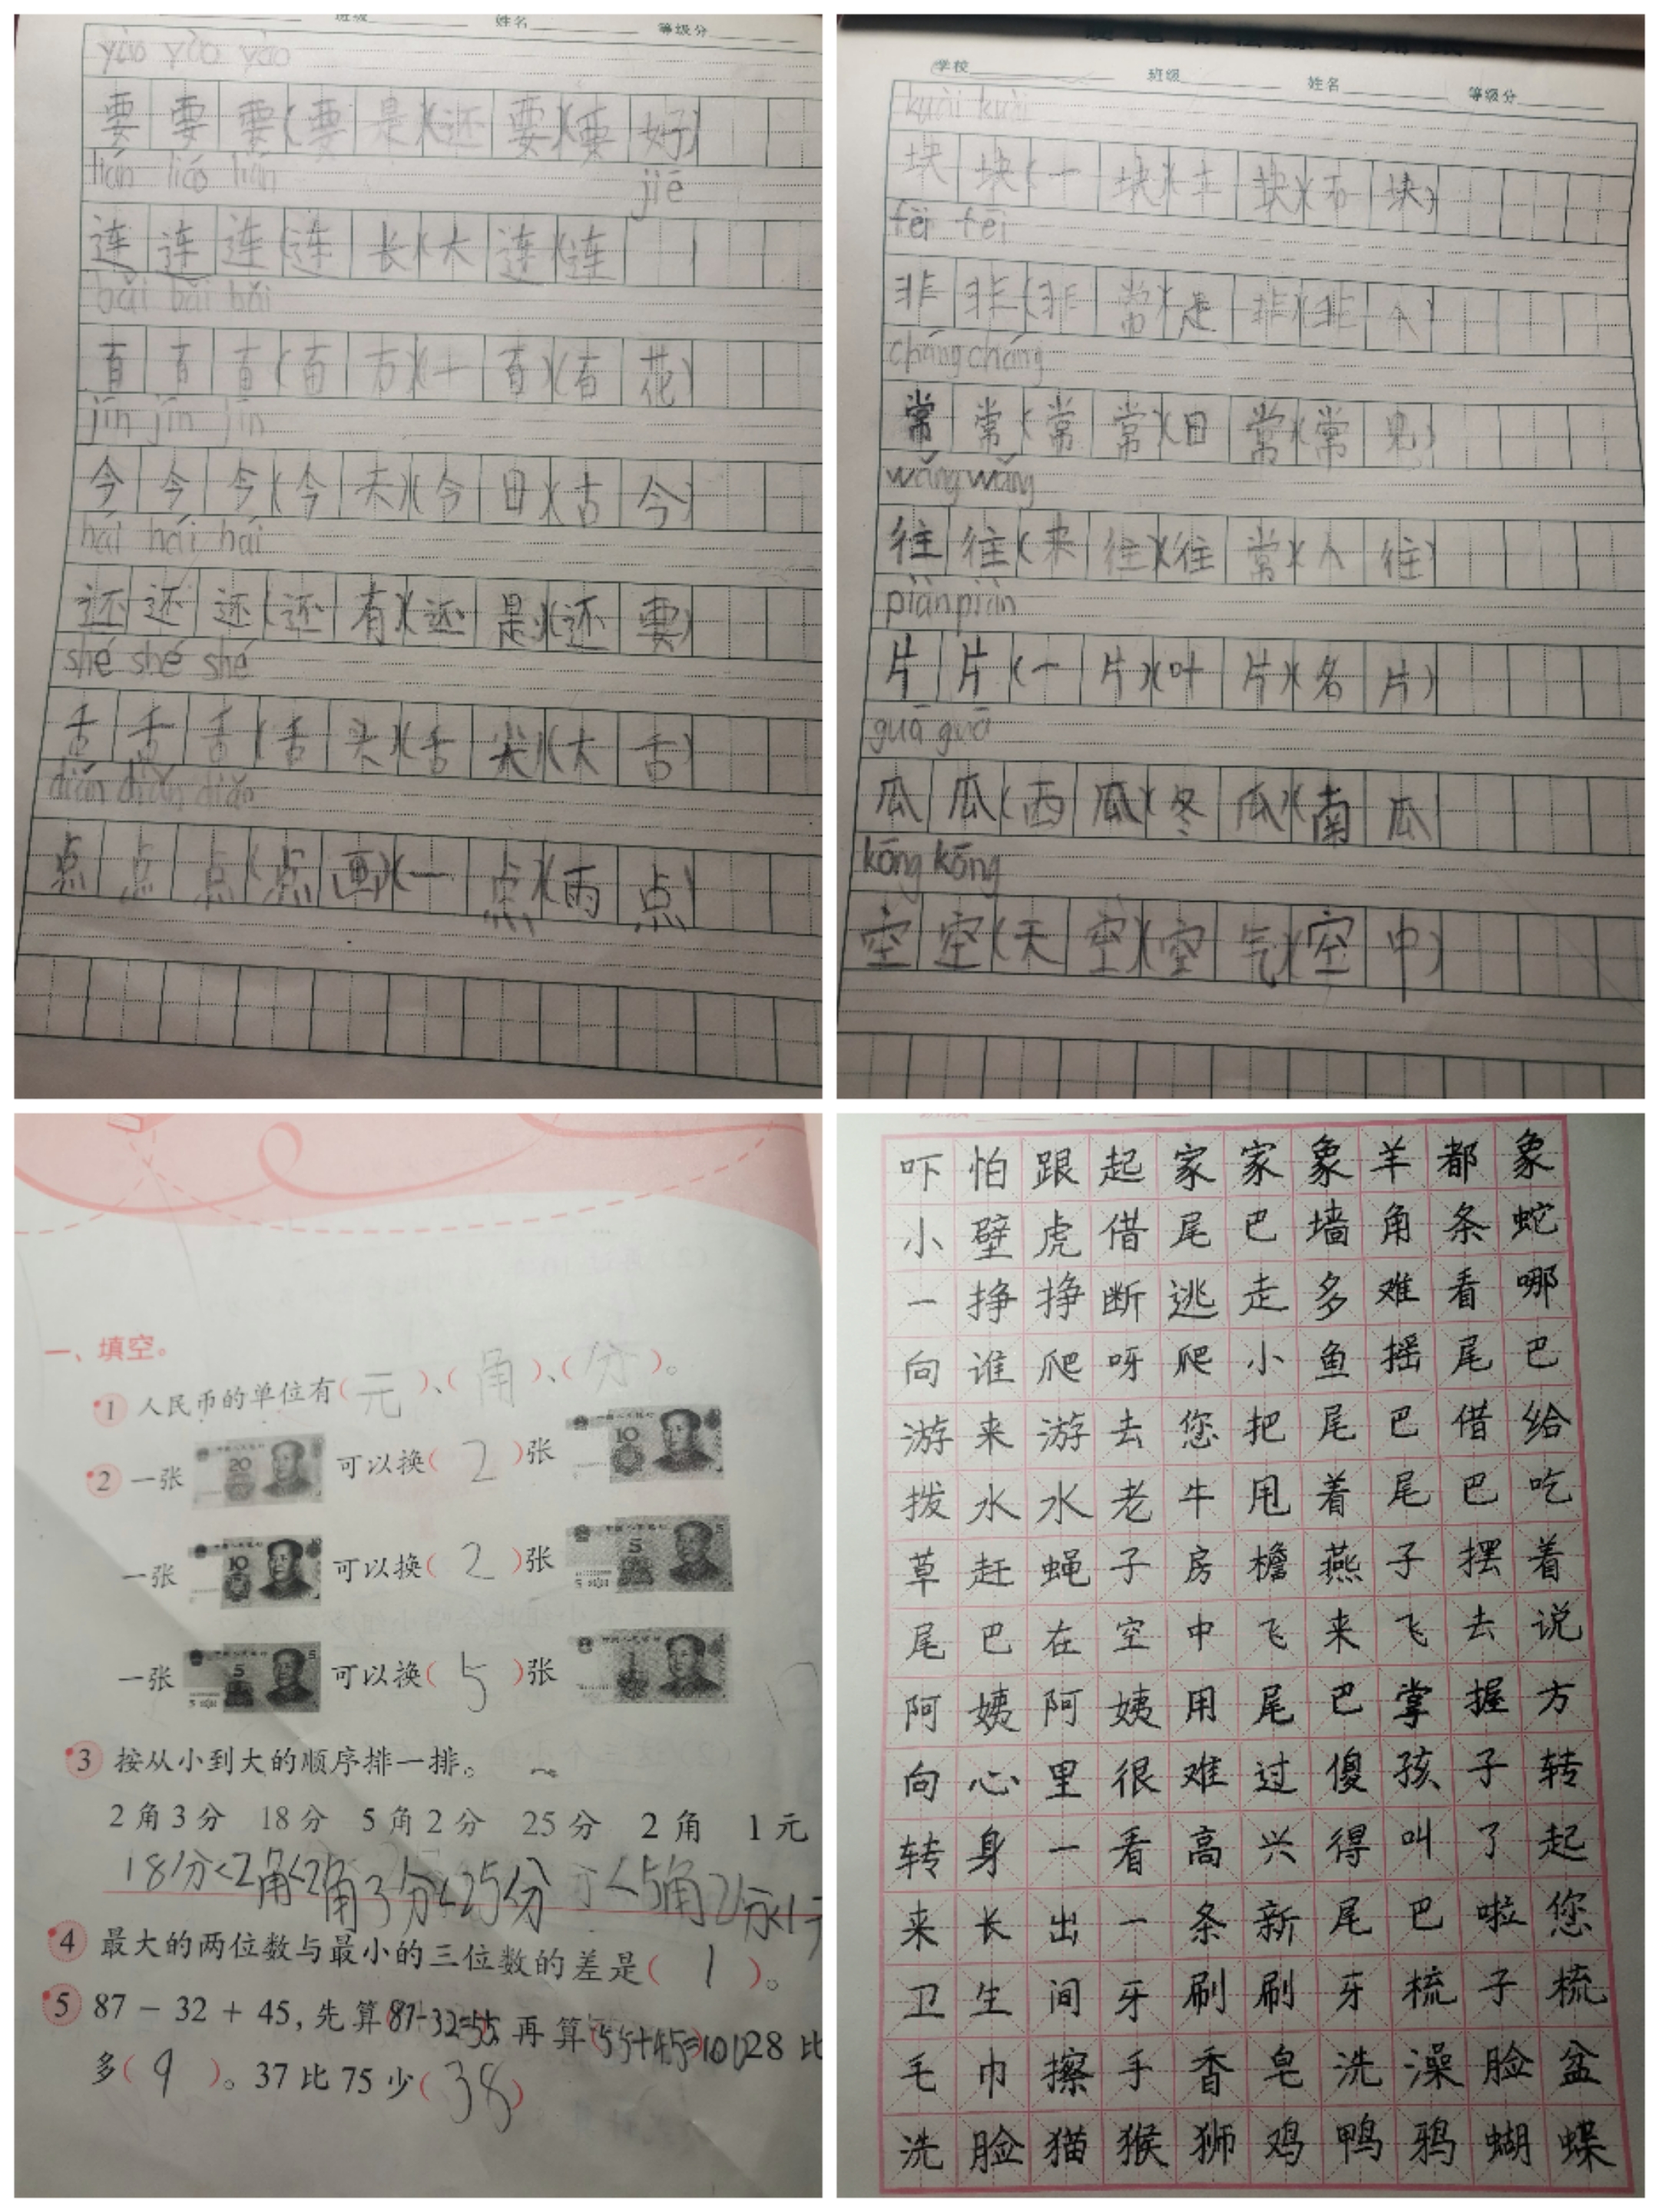 班级 姓名 等级分
yào yào yào
要 要 要(要 是)(还 要)(要 好)
lián lián lián jiē
连 连 连(连 长)(大 连)(连
bǎi bǎi bǎi
百 百 百(百 方)(一 百)(百 花)
jīn jīn jīn
今 今 今(今 天)(今 日)(古 今)
hái hái hái
还 还 还(还 有)(还 是)(还 要)
shé shé shé
舌 舌 舌(舌 头)(舌 尖)(大 舌)
diǎn diǎn diǎn
点 点 点(点 画)(一 点)(雨 点)
学校 班级 姓名 等级分
kuài kuài
块 块(一 块)(土 块)(方 块)
fēi fēi
非 非(非 常)(是 非)(非 人)
cháng cháng
常 常(常 常)(日 常)(常 见)
wǎng wǎng
往 往(来 往)(往 常)(人 往)
piàn piàn
片 片(一 片)(叶 片)(名 片)
guā guā
瓜 瓜(西 瓜)(冬 瓜)(南 瓜
kōng kōng
空 空(天 空)(空 气)(空 中)
一、填空。
1 人民币的单位有(元)、(角)、(分)。
2 一张 20 可以换(2)张 10
一张 10 可以换(2)张 5
一张 5 可以换(5)张 1
3 按从小到大的顺序排一排。
2角3分 18分 5角2分 25分 2角 1元
18分<2角<2角3分<25分<5角2分<1元
4 最大的两位数与最小的三位数的差是(1)。
5 87-32+45,先算87-32=55,再算(55+45=100)28比
多(9)。37比75少(38)
吓怕跟起家家象羊都象
小壁虎借尾巴墙角条蛇
一挣挣断逃走多难看哪
向谁爬呀爬小鱼摇尾巴
游来游去您把尾巴借给
拨水水老牛甩着尾巴吃
草赶蝇子房檐燕子摆着
尾巴在空中飞来飞去说
阿姨阿姨用尾巴掌握方
向心里很难过傻孩子转
转身一看高兴得叫了起
来长出一条新尾巴啦您
卫生间牙刷刷牙梳子梳
毛巾擦手香皂洗澡脸盆
洗脸猫猴狮鸡鸭鸦蝴蝶